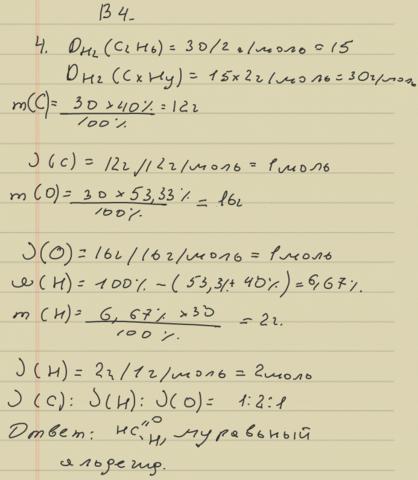 В 4.
4. D H2 (C2H6) = 30/2 г/моль = 15
D H2 (CxHy) = 15 × 2 г/моль = 30 г/моль
m(C) = 30 × 40% / 100% = 12г
ν(C) = 12г/12г/моль = 1моль
m(O) = 30 × 53,33% / 100% = 16г
ν(O) = 16г/16г/моль = 1моль
ω(H) = 100% - (53,3% + 40%) = 6,67%.
m(H) = 6,67% × 30 / 100% = 2г.
ν(H) = 2г/1г/моль = 2моль
ν(C) : ν(H) : ν(O) = 1:2:1
Ответ: HC=O H, муравьный
альдегид.